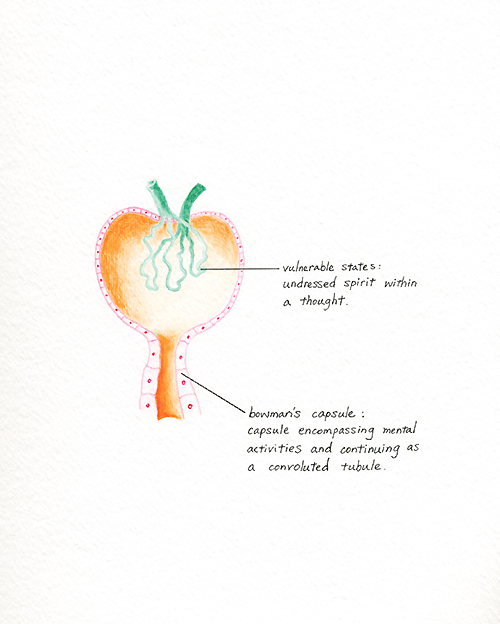 vulnerable states:
undressed spirit within
a thought.
bowman's capsule:
capsule encompassing mental
activities and continuing as
a convoluted tubule.